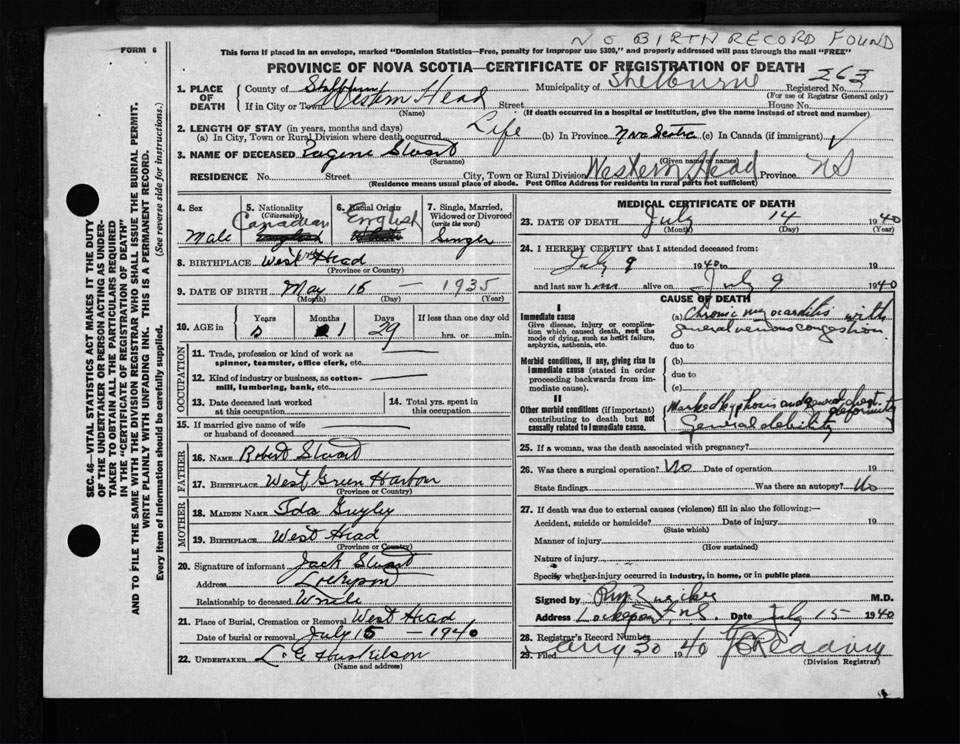 NO BIRTH RECORD FOUND
FORM 6
This form if placed in an envelope, marked "Dominion Statistics—Free, penalty for improper use $300," and properly addressed will pass through the mail "FREE"
PROVINCE OF NOVA SCOTIA—CERTIFICATE OF REGISTRATION OF DEATH
1. PLACE OF DEATH
County of Shelburne Municipality of Shelburne Registered No. 263
(For use of Registrar General only)
If in City or Town Western Head Street House No.
(Name) (If death occurred in a hospital or institution, give the name instead of street and number)
2. LENGTH OF STAY (in years, months and days)
(a) In City, Town or Rural Division where death occurred Life (b) In Province Nova Scotia (c) In Canada (if immigrant) ✓
3. NAME OF DECEASED Eugene Stuart
(Surname) (Given name or names)
RESIDENCE No. Street City, Town or Rural Division Western Head Province NS
(Residence means usual place of abode. Post Office Address for residents in rural parts not sufficient)
4. Sex Male
5. Nationality (Citizenship) Canadian
6. Racial Origin English
7. Single, Married, Widowed or Divorced (write the word) Single
8. BIRTHPLACE West Head
(Province or Country)
9. DATE OF BIRTH May 15 — 1935
(Month) (Day) (Year)
10. AGE in Years 5 Months 1 Days 29 If less than one day old hrs. or min.
OCCUPATION
11. Trade, profession or kind of work as spinner, teamster, office clerk, etc. —
12. Kind of industry or business, as cotton-mill, lumbering, bank, etc. —
13. Date deceased last worked at this occupation
14. Total yrs. spent in this occupation
15. If married give name of wife or husband of deceased
FATHER
16. NAME Robert Stuart
17. BIRTHPLACE West Green Harbour
(Province or Country)
MOTHER
18. MAIDEN NAME Ida
19. BIRTHPLACE West Head
(Province or Country)
20. Signature of informant Jack Stuart
Address Lockeport
Relationship to deceased Uncle
21. Place of Burial, Cremation or Removal West Head
Date of burial or removal July 15 — 1940
22. UNDERTAKER L. E. Huskilson
(Name and address)
MEDICAL CERTIFICATE OF DEATH
23. DATE OF DEATH July 14 1940
(Month) (Day) (Year)
24. I HEREBY CERTIFY that I attended deceased from:
July 9 1940 to 19
and last saw him alive on July 9 1940
CAUSE OF DEATH
I
Immediate cause
Give disease, injury or complication which caused death, not the mode of dying, such as heart failure, asphyxia, asthenia, etc.
(a) Chronic myocarditis with general venous congestion
due to
Morbid conditions, if any, giving rise to immediate cause (stated in order proceeding backwards from immediate cause).
(b)
due to
(c)
II
Other morbid conditions (if important) contributing to death but not causally related to immediate cause.
Marked kyphosis and general chest deformity
General debility
25. If a woman, was the death associated with pregnancy?
26. Was there a surgical operation? No Date of operation 19
State findings Was there an autopsy? No
27. If death was due to external causes (violence) fill in also the following:—
Accident, suicide or homicide? Date of injury 19
(State which)
Manner of injury
(How sustained)
Nature of injury
Specify whether injury occurred in industry, in home, or in public place
Signed by M.D.
Address Lockeport N.S. Date July 15 1940
28. Registrar's Record Number
29. Filed Aug 30 1940
(Division Registrar)
SEC. 46—VITAL STATISTICS ACT MAKES IT THE DUTY
OF THE UNDERTAKER OR PERSON ACTING AS UNDER-
TAKER TO OBTAIN ALL THE PARTICULARS REQUIRED
IN THE "CERTIFICATE OF REGISTRATION OF DEATH"
AND TO FILE THE SAME WITH THE DIVISION REGISTRAR WHO SHALL ISSUE THE BURIAL PERMIT.
WRITE PLAINLY WITH UNFADING INK. THIS IS A PERMANENT RECORD.
Every item of information should be carefully supplied. (See reverse side for instructions.)